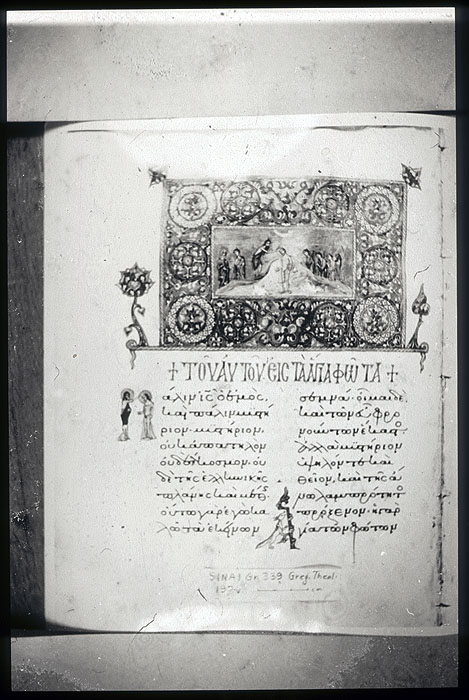 + ΤΟΥ ΑΥΤΟΥ ΕΙΣ ΤΑ ΑΓΙΑ ΦΩΤΑ +
αλιν ις ὁ ἐμός,
και πάλιν μυστή
ριον· μυστήριον
οὐκ ἀπατηλὸν
οὐδὲ ἄκοσμον· οὐ
δὲ τῆς ἑλληνικῆς
πλάνης καὶ μέθης
οὕτω γὰρ ἐγὼ κα
λῶ τὰ ἐκείνων
σεμνά· οἶμαι δὲ
καὶ τῶν εὖ φρο
νούντων ἕκαστ
ἀλλὰ μυστήριον
ὑψηλόν τε καὶ
θεῖον, καὶ τῆς ἄ
νω λαμπρότητ
πρόξενον· ἡ γὰρ
γία τῶν φώτων
SINAI Gr. 339 Greg. Theol.
cm